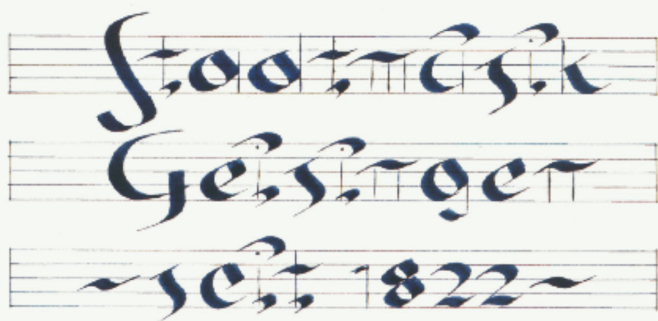 Stadtmusik
Geisingen
~ seit 1822 ~